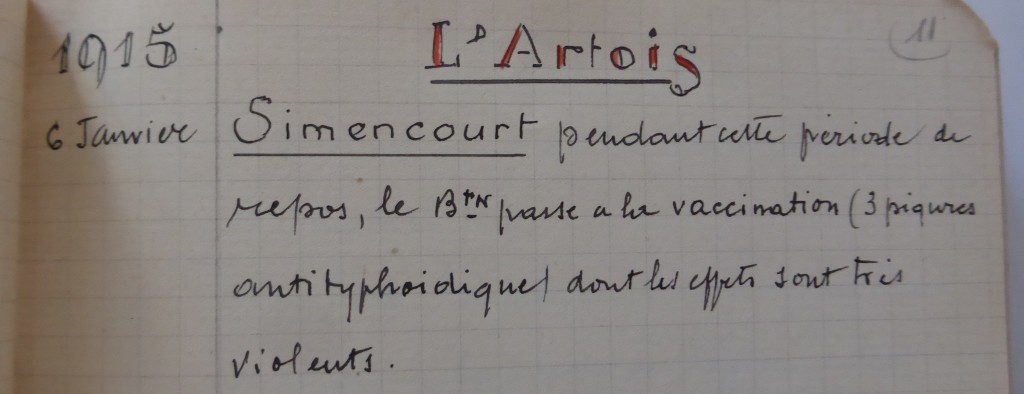 11
1915 L'Artois
6 Janvier Simencourt pendant cette période de
repos, le Btn passe a la vaccination (3 piqures
antityphoidique) dont les effets sont très
violents.